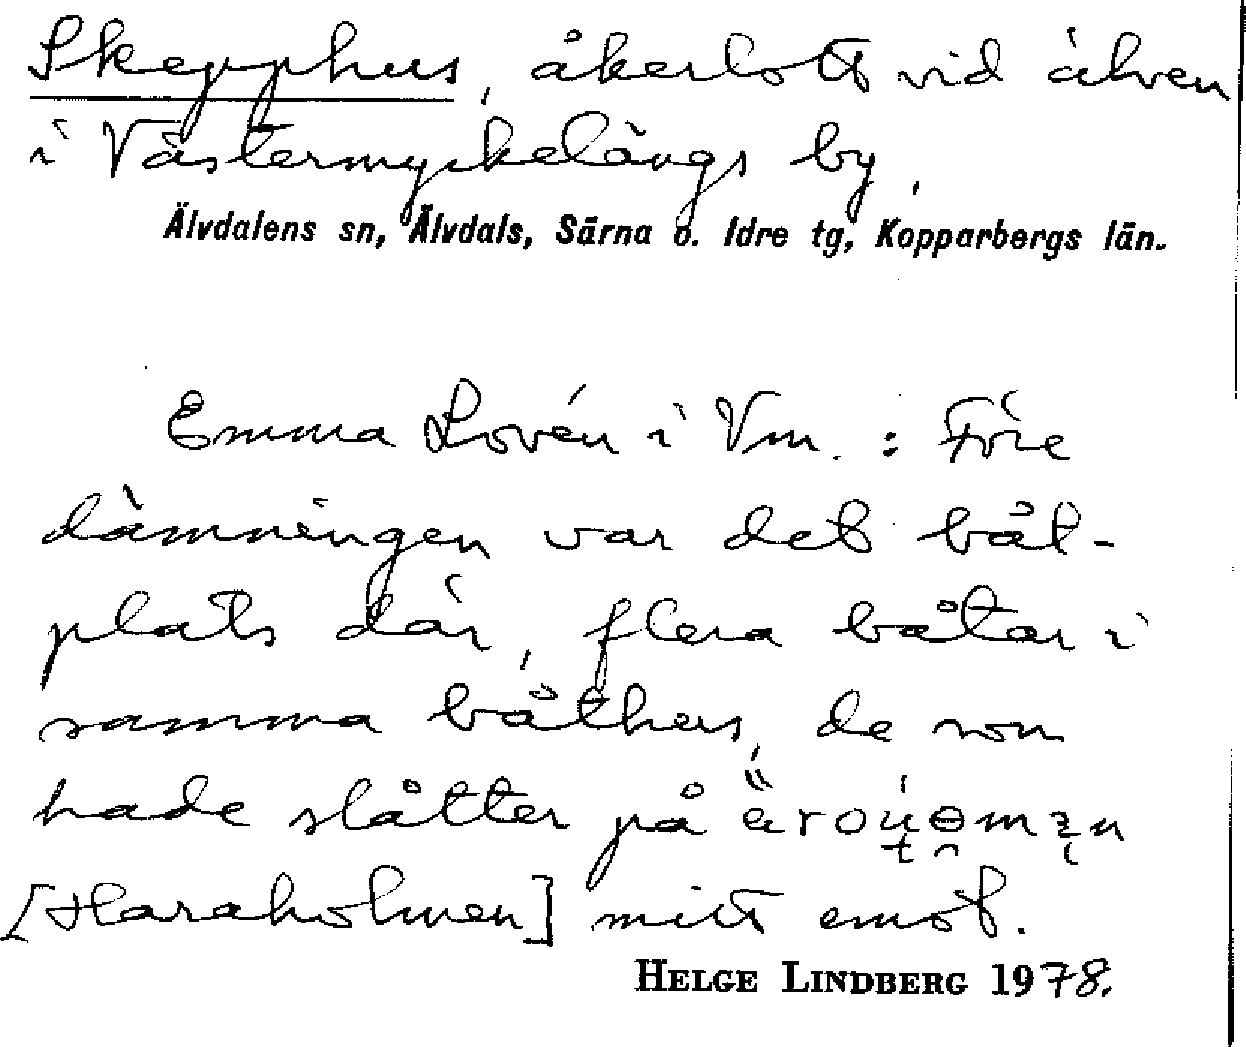 Skepphus, åkerlott vid älven
i Västermyckelängs by,
Älvdalens sn, Älvdals, Särna o. Idre tg, Kopparbergs län.
Emma Lovén i Vm. : Före
dämningen var det båt-
plats där, flera båtar i
samma båthus, de som
hade slåtter på
[Haraholmen] mitt emot.
HELGE LINDBERG 1978.